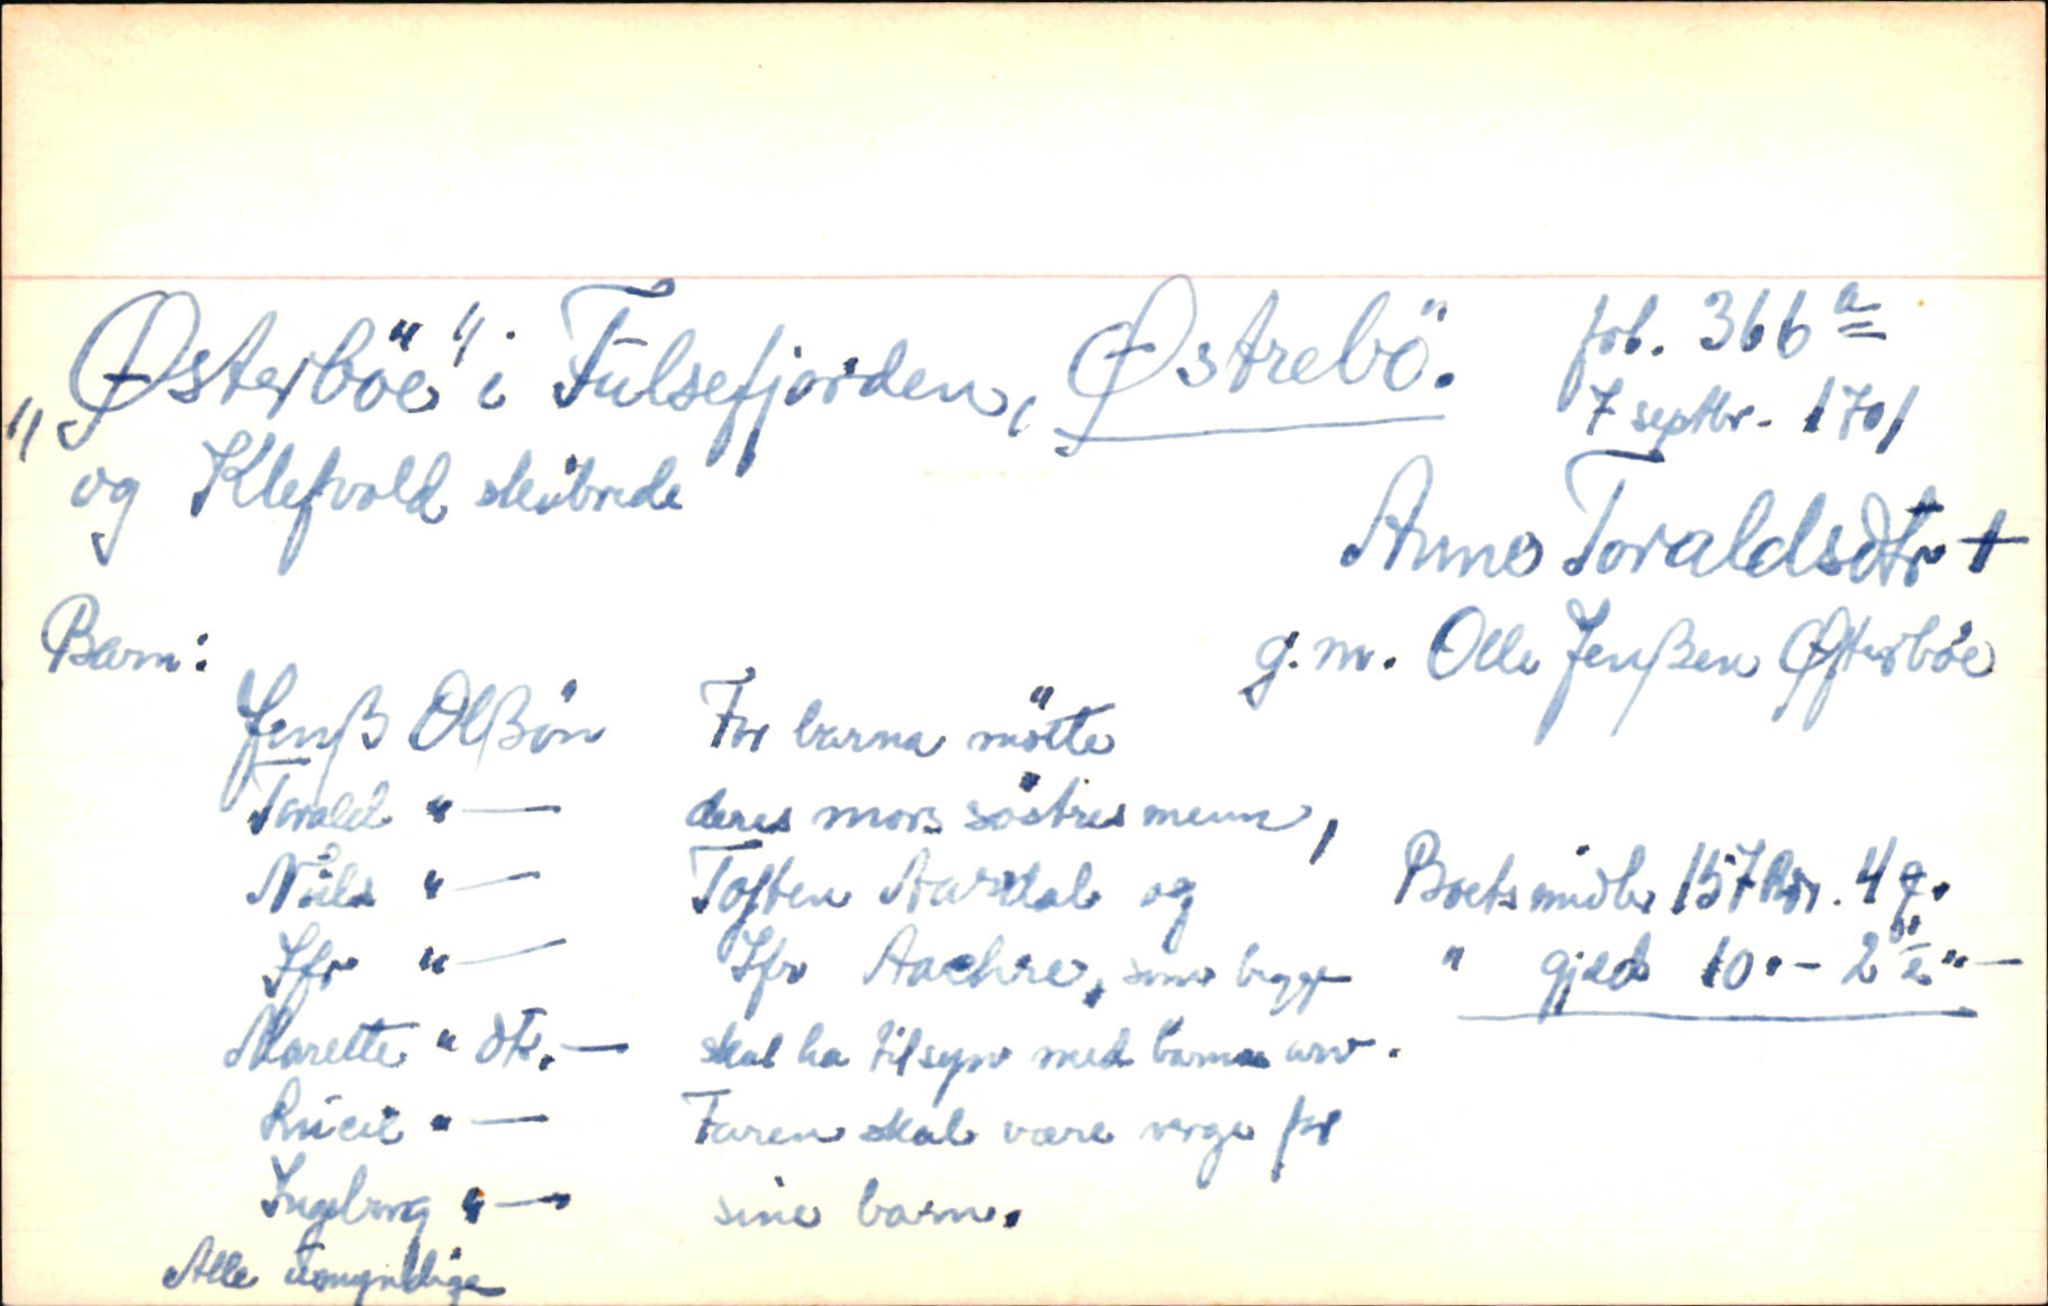 "Østerböe" i Fulsefjorden, Östrebö. fol. 366 a
7 septbr. 1701
og Klefvold skibrede
Anne Toraldsdtr +
g.m. Olle Jenßen Østerböe
Barn:
Jenß Olßön For barna mötte
Torald " — deres mors söstres menn,
Nils " — Tosten Aardal og Boets midler 157 Rdr. 4 q.
Ifr " — Ifr Aachre, som begge " gjeld 10 " - 2 ½ " —
Marette " dtr. — skal ha tilsyn med barnas arv.
Lucie " — Faren skal være verge for
Ingeborg " — sine barn.
Alle umyndige